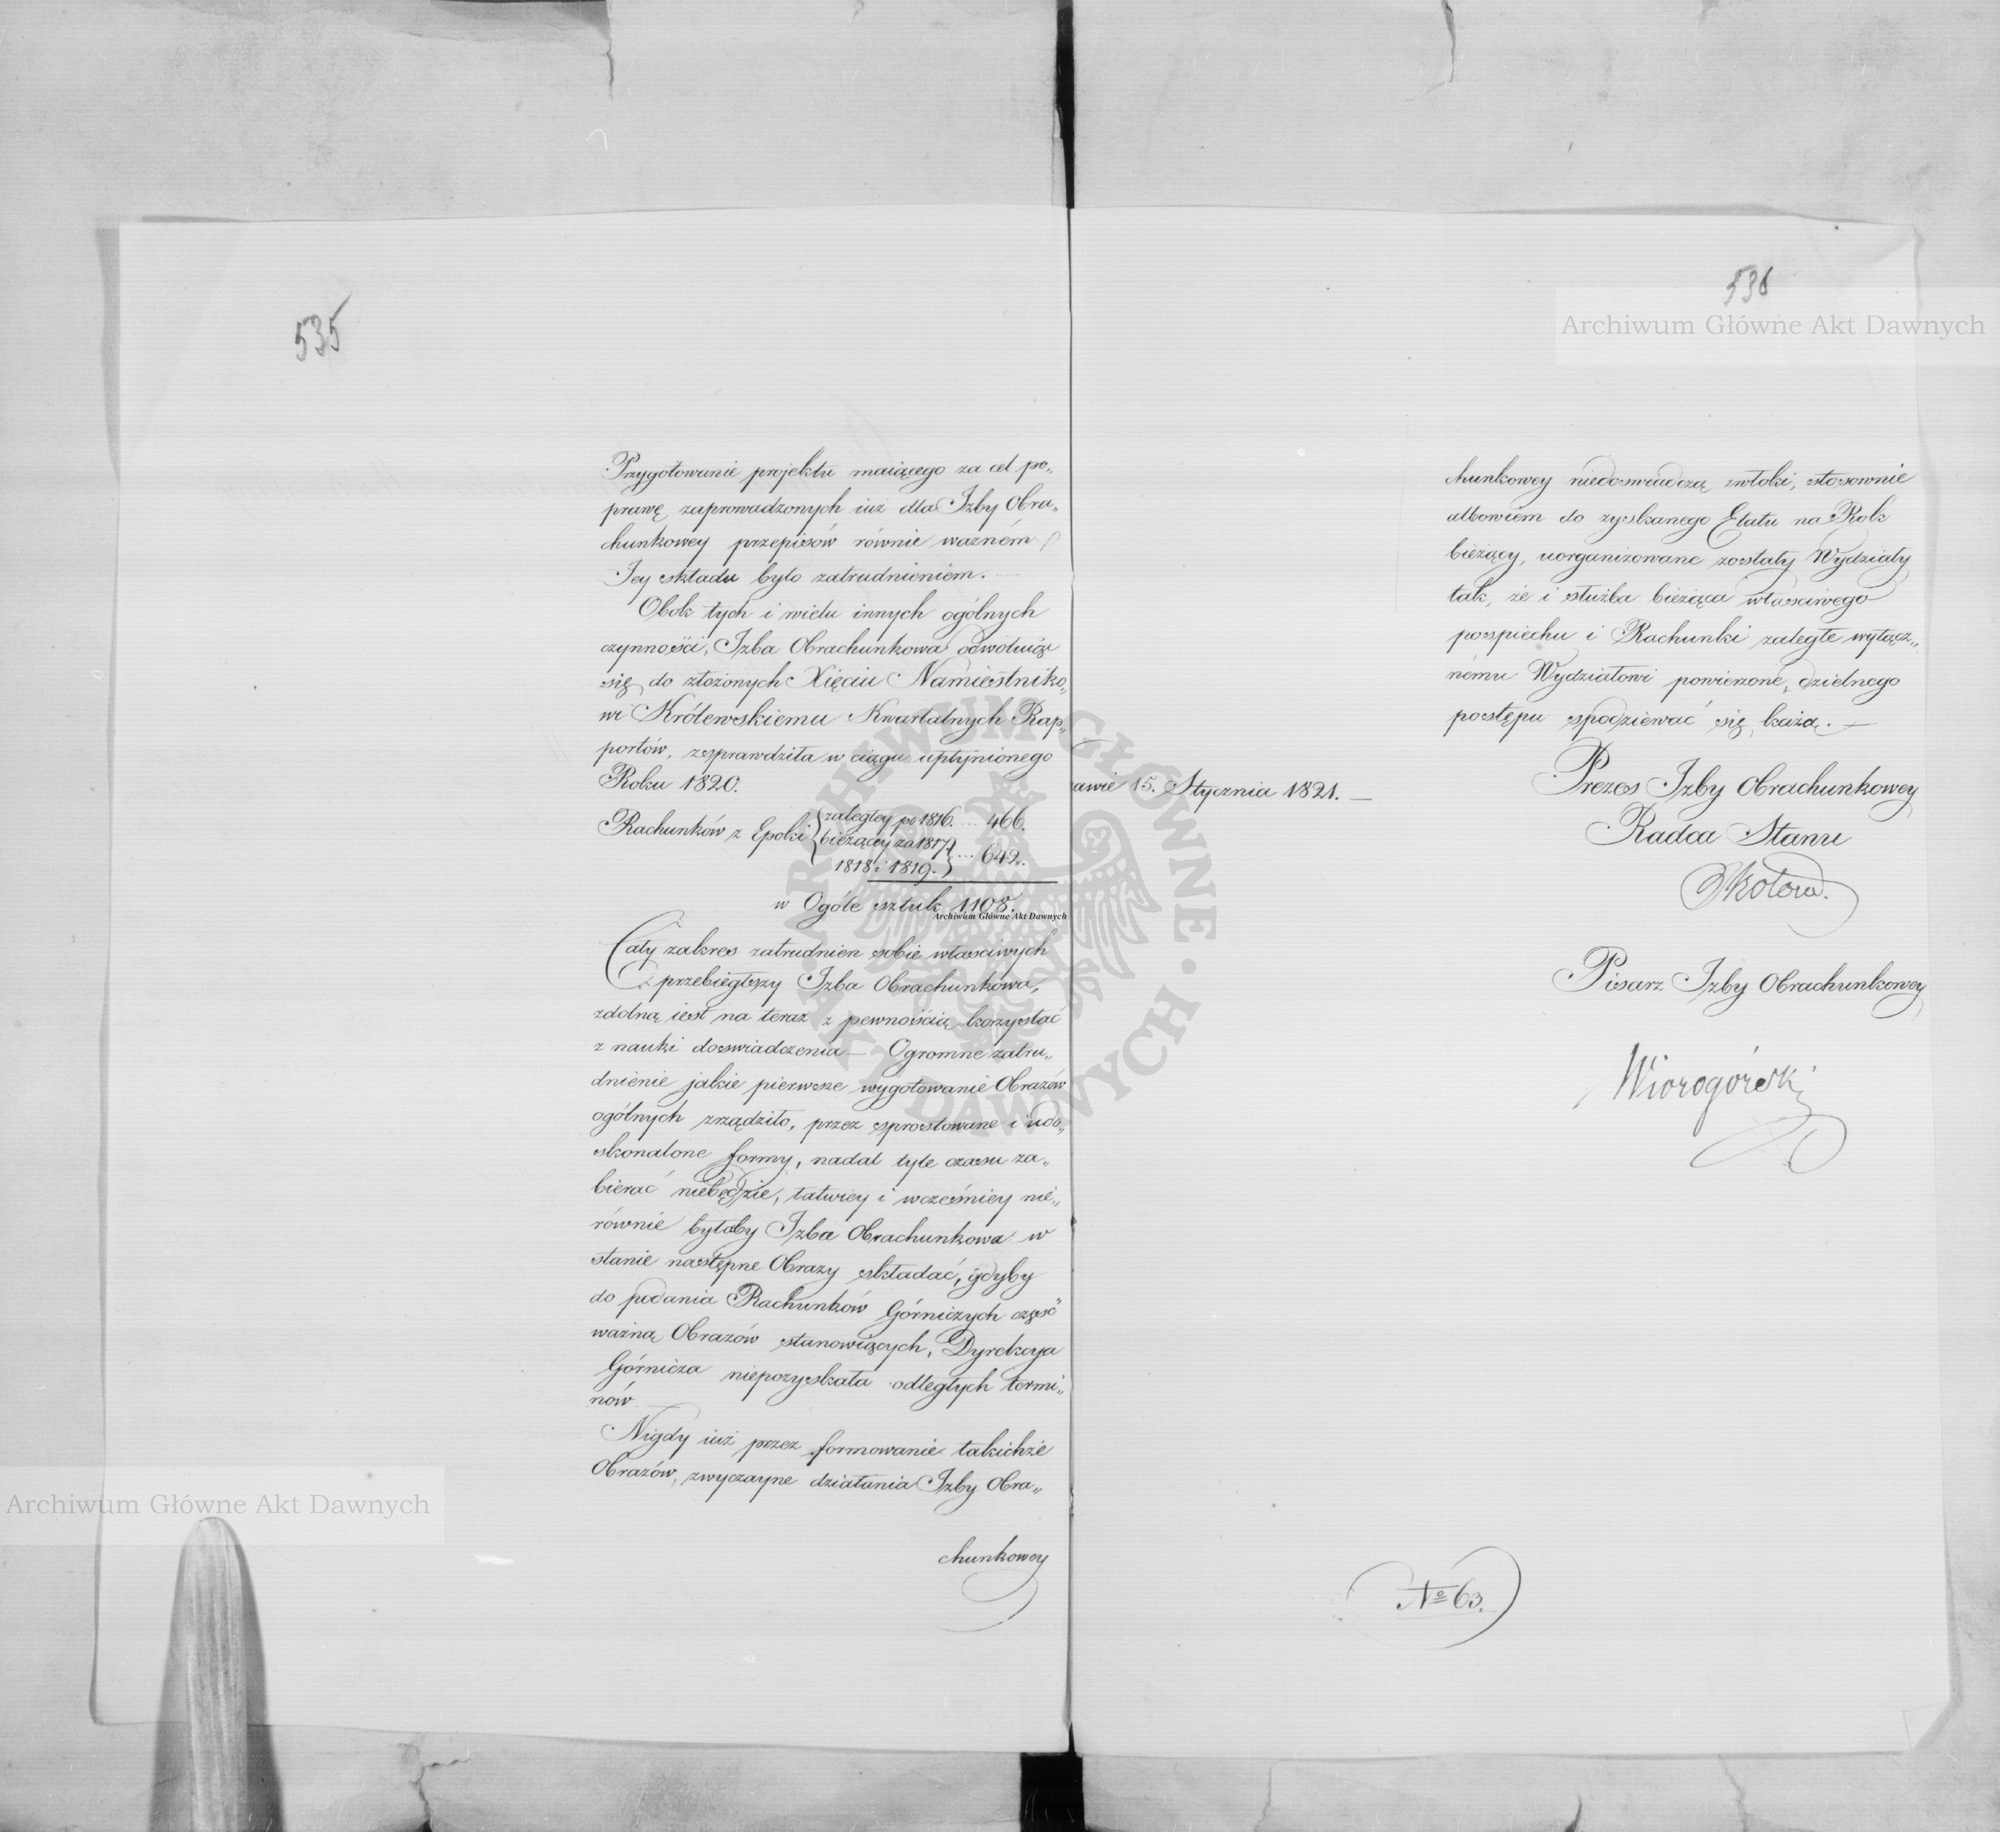 535
Przygotowanie projektu maiącego za cel po„
prawę zaprowadzonych iuż dla Izby Obra„
chunkowey przepisów równie ważném
Jey składu było zatrudnieniem. —
Obok tych i wielu innych ogólnych
czynności, Izba Obrachunkowa odwołuiąc
się do złożonych Xięciu Namiestniko„
wi Królewskiemu Kwartalnych Rap„
portów, zesprawdziła w ciągu upłynionego
Roku 1820.
Rachunków z Epoki { zaległey po 1816. ... 466.
bieżącey za 1817
1818 i 1819. } ... 642.
w Ogóle sztuk 1108.
Cały zakres zatrudnien sobie właściwych
przebiegłszy Izba Obrachunkowa,
zdolną iest na teraz z pewnością korzystać
z nauki doswiadczenia — Ogromne zatru„
dnienie jakie pierwsze wygotowanie Obrazów
ogólnych zrządziło, przez sprostowane i udo„
skonalone formy, nadal tyle czasu za„
bierać niebędzie, łatwiey i wcześniey nie„
równie byłaby Izba Obrachunkowa w
stanie następne Obrazy składać, gdyby
do podania Rachunków Górniczych część
ważną Obrazów stanowiących, Dyrekcya
Górnicza niepozyskała odległych termi„
nów
Nigdy iuż przez formowanie takichże
Obrazów, zwyczayne działania Izby Obra„
chunkowey
536
chunkowey niedoswiadczą zwłoki, stosownie
albowiem do zyskanego Etatu na Rok
bieżący, uorganizowane zostały Wydziały
tak, że i służba bieżąca właściwego
pospiechu i Rachunki zaległe wyłącz„
nému Wydziałowi powierzone, dzielnego
postępu spodziewać się każą. —
awie 15. Stycznia 1821. —
Prezes Izby Obrachunkowey
Radca Stanu
Pisarz Izby Obrachunkowey
Wiorogórski
No 63.
Archiwum Główne Akt Dawnych
Archiwum Główne Akt Dawnych
Archiwum Główne Akt Dawnych
ARCHIWUM GŁÓWNE · AKT DAWNYCH ·